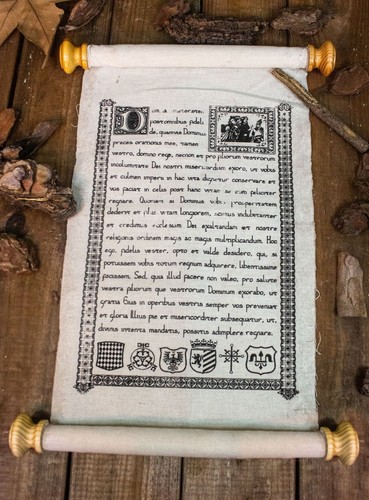 postremibus fideli
de, quamvis Dominus
preces orationis mee, tamen
vestro, domino rege, necnon et pro filiorum vestrorum
incolumitate Dei nostri misericordiam exoro, ut vobis
et culmen imperii in hac vita dignetur conservare et
vos faciat in celis post hanc vitam cum feliciter
regnare. Quoniam si Dominus vobis prosperitatem
dederit et vitam longiorem, indubitanter
et credimus ecclesiam Dei exaltandam et nostre
religionis ordinem magis ac magis multiplicandum. Hoc
ego, fidelis vester, opto et valde desidero, qui, si
potuissem vobis votum regnum adquirere, libentissime
fecissem. Sed, quia illud facere non valeo, pro salute
vestra filiorum que vestrorum Dominum exorabo, ut
gratia Eius in operibus vestris semper vos preveniat
et gloria Illius pie et misericorditer subsequatur, ut,
divinis intenta mandatis, possitis adimplere regnare.